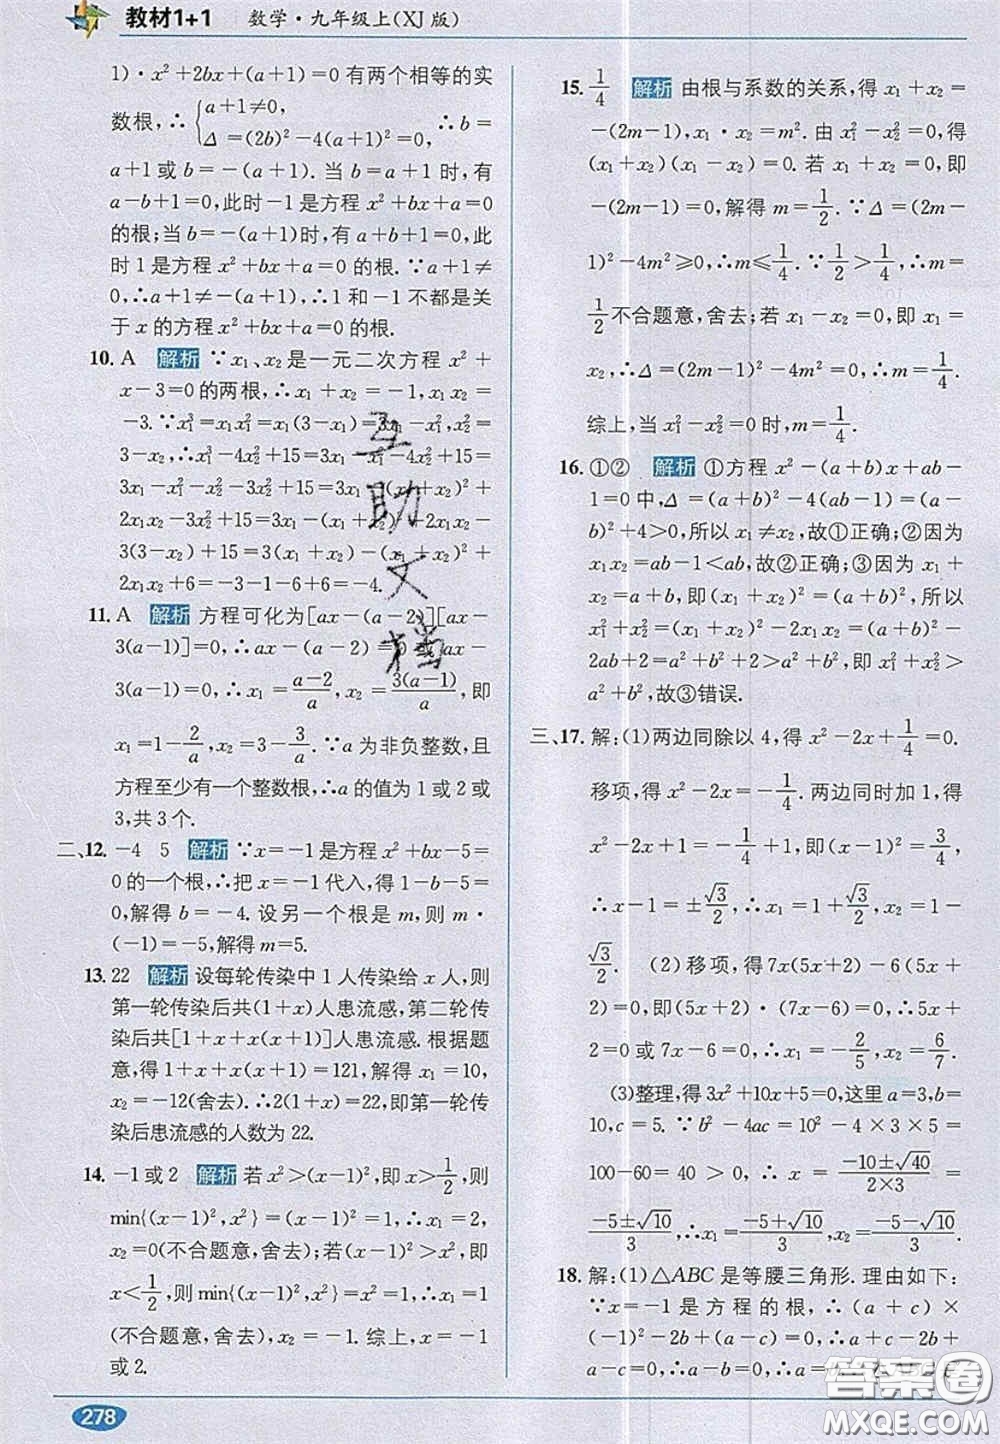 教材1+1 数学·九年级上(XJ版)
1)·x²+2bx+(a+1)=0有两个相等的实
数根,∴{a+1≠0, Δ=(2b)²-4(a+1)²=0, ∴b=
a+1或-(a+1).当b=a+1时,有
a-b+1=0,此时-1是方程x²+bx+a=0
的根;当b=-(a+1)时,有a+b+1=0,此
时1是方程x²+bx+a=0的根.∵a+1≠
0,∴a+1≠-(a+1),∴1和-1不都是关
于x的方程x²+bx+a=0的根.
10. A 解析 ∵x₁、x₂是一元二次方程x²+
x-3=0的两根,∴x₁+x₂=-1,x₁x₂=
-3.∵x₁³=x₁·x₁²=x₁(3-x₁)=3x₁-x₁²,x₂²=
3-x₂,∴x₁³-4x₂²+15=3x₁-x₁²-4x₂²+15=
3x₁-x₁²-x₂²-3x₂²+15=3x₁-(x₁²+x₂²)-
3(3-x₂)+15=3(x₁+x₂)-(x₁+x₂)²+
2x₁x₂+6=-3-1-6+6=-4.
11. A 解析 方程可化为[ax-(a-2)][ax-
3(a-1)]=0,∴ax-(a-2)=0或ax-
3(a-1)=0,∴x₁=(a-2)/a,x₂=3(a-1)/a,即
x₁=1-2/a,x₂=3-3/a.∵a为非负整数,且
方程至少有一个整数根,∴a的值为1或2或
3,共3个.
二、12. -4 5 解析 ∵x=-1是方程x²+bx-5=
0的一个根,∴把x=-1代入,得1-b-5=
0,解得b=-4.设另一个根是m,则m·
(-1)=-5,解得m=5.
13. 22 解析 设每轮传染中1人传染给x人,则
第一轮传染后共(1+x)人患流感,第二轮传
染后共[1+x+x(x+1)]人患流感.根据题
意,得1+x+x(x+1)=121,解得x₁=10,
x₂=-12(舍去).∴2(1+x)=22,即第一轮传
染后患流感的人数为22.
14. -1或2 解析 若x²>(x-1)²,即x>1/2,则
min{(x-1)²,x²}=(x-1)²=1,∴x₁=2,
x₂=0(不合题意,舍去);若(x-1)²>x²,即
x<1/2,则min{(x-1)²,x²}=x²=1,∴x₁=1
(不合题意,舍去),x₂=-1.综上,x=-1
或2.
15. 1/4 解析 由根与系数的关系,得x₁+x₂=
-(2m-1),x₁·x₂=m².由x₁²-x₂²=0,得
(x₁+x₂)(x₁-x₂)=0.若x₁+x₂=0,即
-(2m-1)=0,解得m=1/2.∵Δ=(2m-
1)²-4m²≥0,∴m≤1/4.∵1/2>1/4,∴m=
1/2不合题意,舍去;若x₁-x₂=0,即x₁=
x₂,∴Δ=(2m-1)²-4m²=0,∴m=1/4.
综上,当x₁²-x₂²=0时,m=1/4.
16. ①② 解析 ①方程x²-(a+b)x+ab-
1=0中,Δ=(a+b)²-4(ab-1)=(a-
b)²+4>0,所以x₁≠x₂,故①正确;②因为
x₁x₂=ab-1<ab,故②正确;③因为x₁+
x₂=a+b,即(x₁+x₂)²=(a+b)²,所以
x₁²+x₂²=(x₁+x₂)²-2x₁x₂=(a+b)²-
2ab+2=a²+b²+2,即x₁²+x₂²>
a²+b²,故③错误.
三、17. 解:(1)两边同除以4,得x²-2x+1/4=0.
移项,得x²-2x=-1/4.两边同时加1,得
x²-2x+1=-1/4+1,即(x-1)²=3/4,
∴x-1=±√3/2,∴x₁=1+√3/2,x₂=1-
√3/2. (2)移项,得7x(5x+2)-6(5x+2)=
0,即(5x+2)·(7x-6)=0,∴5x+2
=0或7x-6=0,∴x₁=-2/5,x₂=6/7.
(3)整理,得3x²+10x+5=0,这里a=3,b=
10,c=5.∵b²-4ac=10²-4×3×5=
100-60=40>0,∴x=(-10±√40)/(2×3)=
(-5±√10)/3,∴x₁=(-5+√10)/3,x₂=(-5-√10)/3.
18. 解:(1)△ABC是等腰三角形.理由如下:
∵x=-1是方程的根,∴(a+c)×
(-1)²-2b+(a-c)=0,∴a+c-2b+
a-c=0,∴a-b=0,∴a=b,
互助文档
答案圈
MXQE.COM
278